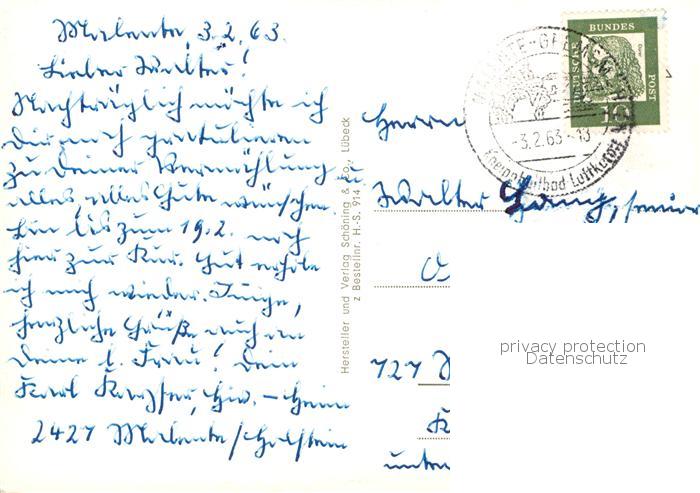 Malente, 3.2.63.
Lieber Walter!
Nachträglich möchte ich
Dir noch gratulieren
zu Deiner Vermählung u.
alles, alles Gute wünschen.
Bin bis zum 19.2. noch
hier zur Kur. Gut erhole
ich mich wieder.
herzliche Grüße auch an
Deine l. Frau! Dein
Karl
2427 Malente/Holstein
Hersteller und Verlag Schöning & Co., Lübeck
z Bestellnr. H.-S. 914
BUNDES
POST
DEUTSCHE
10
-3.2.63-18
Kneippheilbad Luftkurort
Herrn
Walter senior
727
unten
privacy protection
Datenschutz